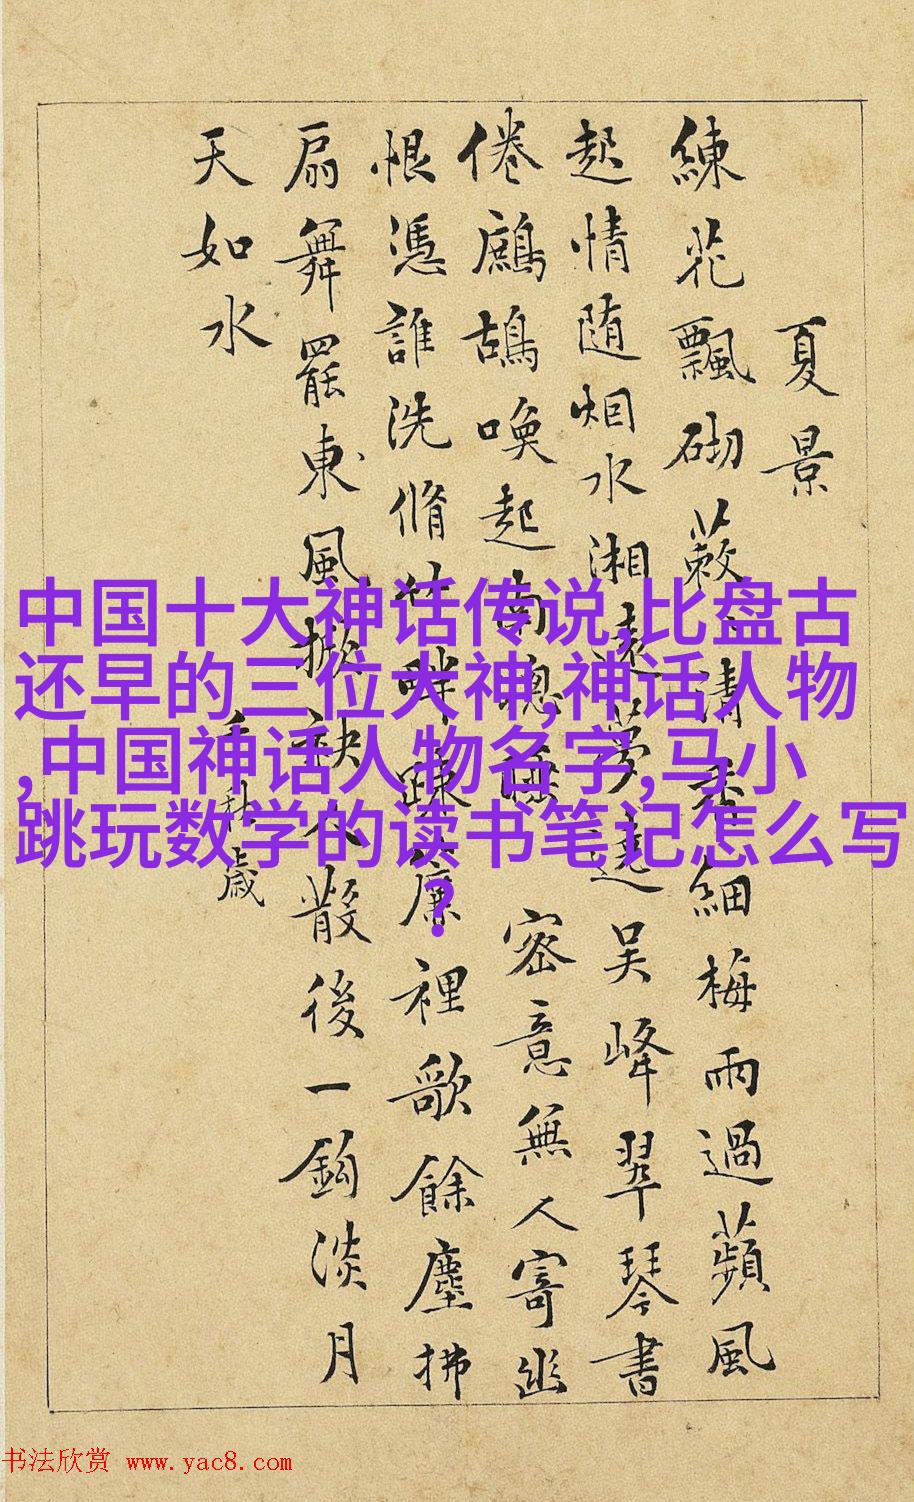 夏景
練花飄砌蔌〻清香細梅雨過蘋風
起情随烟水湘遠夢遶吴峰翠琴書
倦鷓鴣喚起南窓睡 密意無人寄幽
恨憑誰洗脩竹畔疎簾裡歌餘塵拂
扇舞罷東風掀袂人散後一鈎淡月
天如水
千秋歲
中国十大神话传说,比盘古
还早的三位大神,神话人物
,中国神话人物名字,马小
跳玩数学的读书笔记怎么写
?
书法欣赏 www.yac8.com